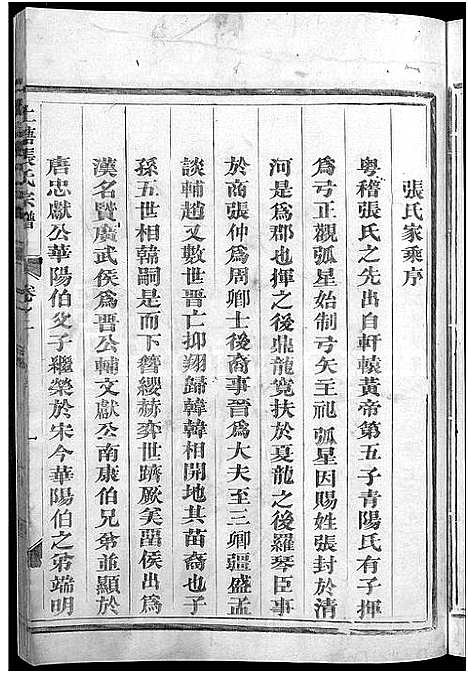 張氏家乘序
粵稽張氏之先出自軒轅黃帝第五子青陽氏有子揮
為弓正觀弧星始制弓矢主祀弧星因賜姓張封於清
河是為郡也揮之後鼎龍寬扶於夏龍之後羅琴臣事
於商張仲為周卿士後裔事晉為大夫至三卿疆盛孟
談輔趙又數世晉亡抑翔歸韓韓相開地其苗裔也子
孫五世相韓嗣是而下簪纓赫奕世躋厥美畱侯出為
漢名賢廣武侯為晉公輔文獻公南康伯兄弟並顯於
唐忠獻公華陽伯父子繼榮於宋今華陽伯之弟端明
張氏宗譜
卷之一